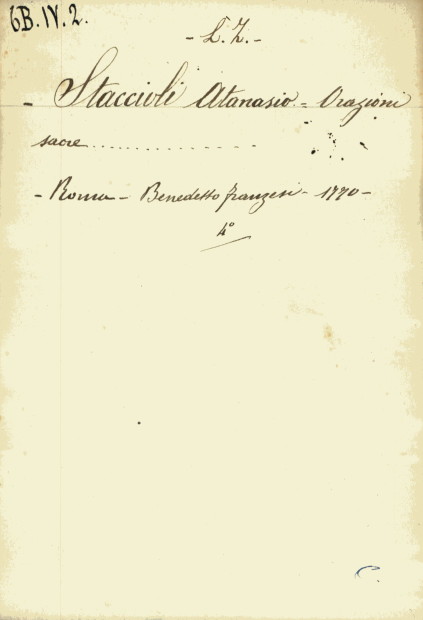 6B.IV.2.
- L. Z. -
- Staccioli Atanasio = Orazioni
sacre. . . . . . . . . . . . . .
- Roma - Benedetto Franzesi - 1770 -
4°